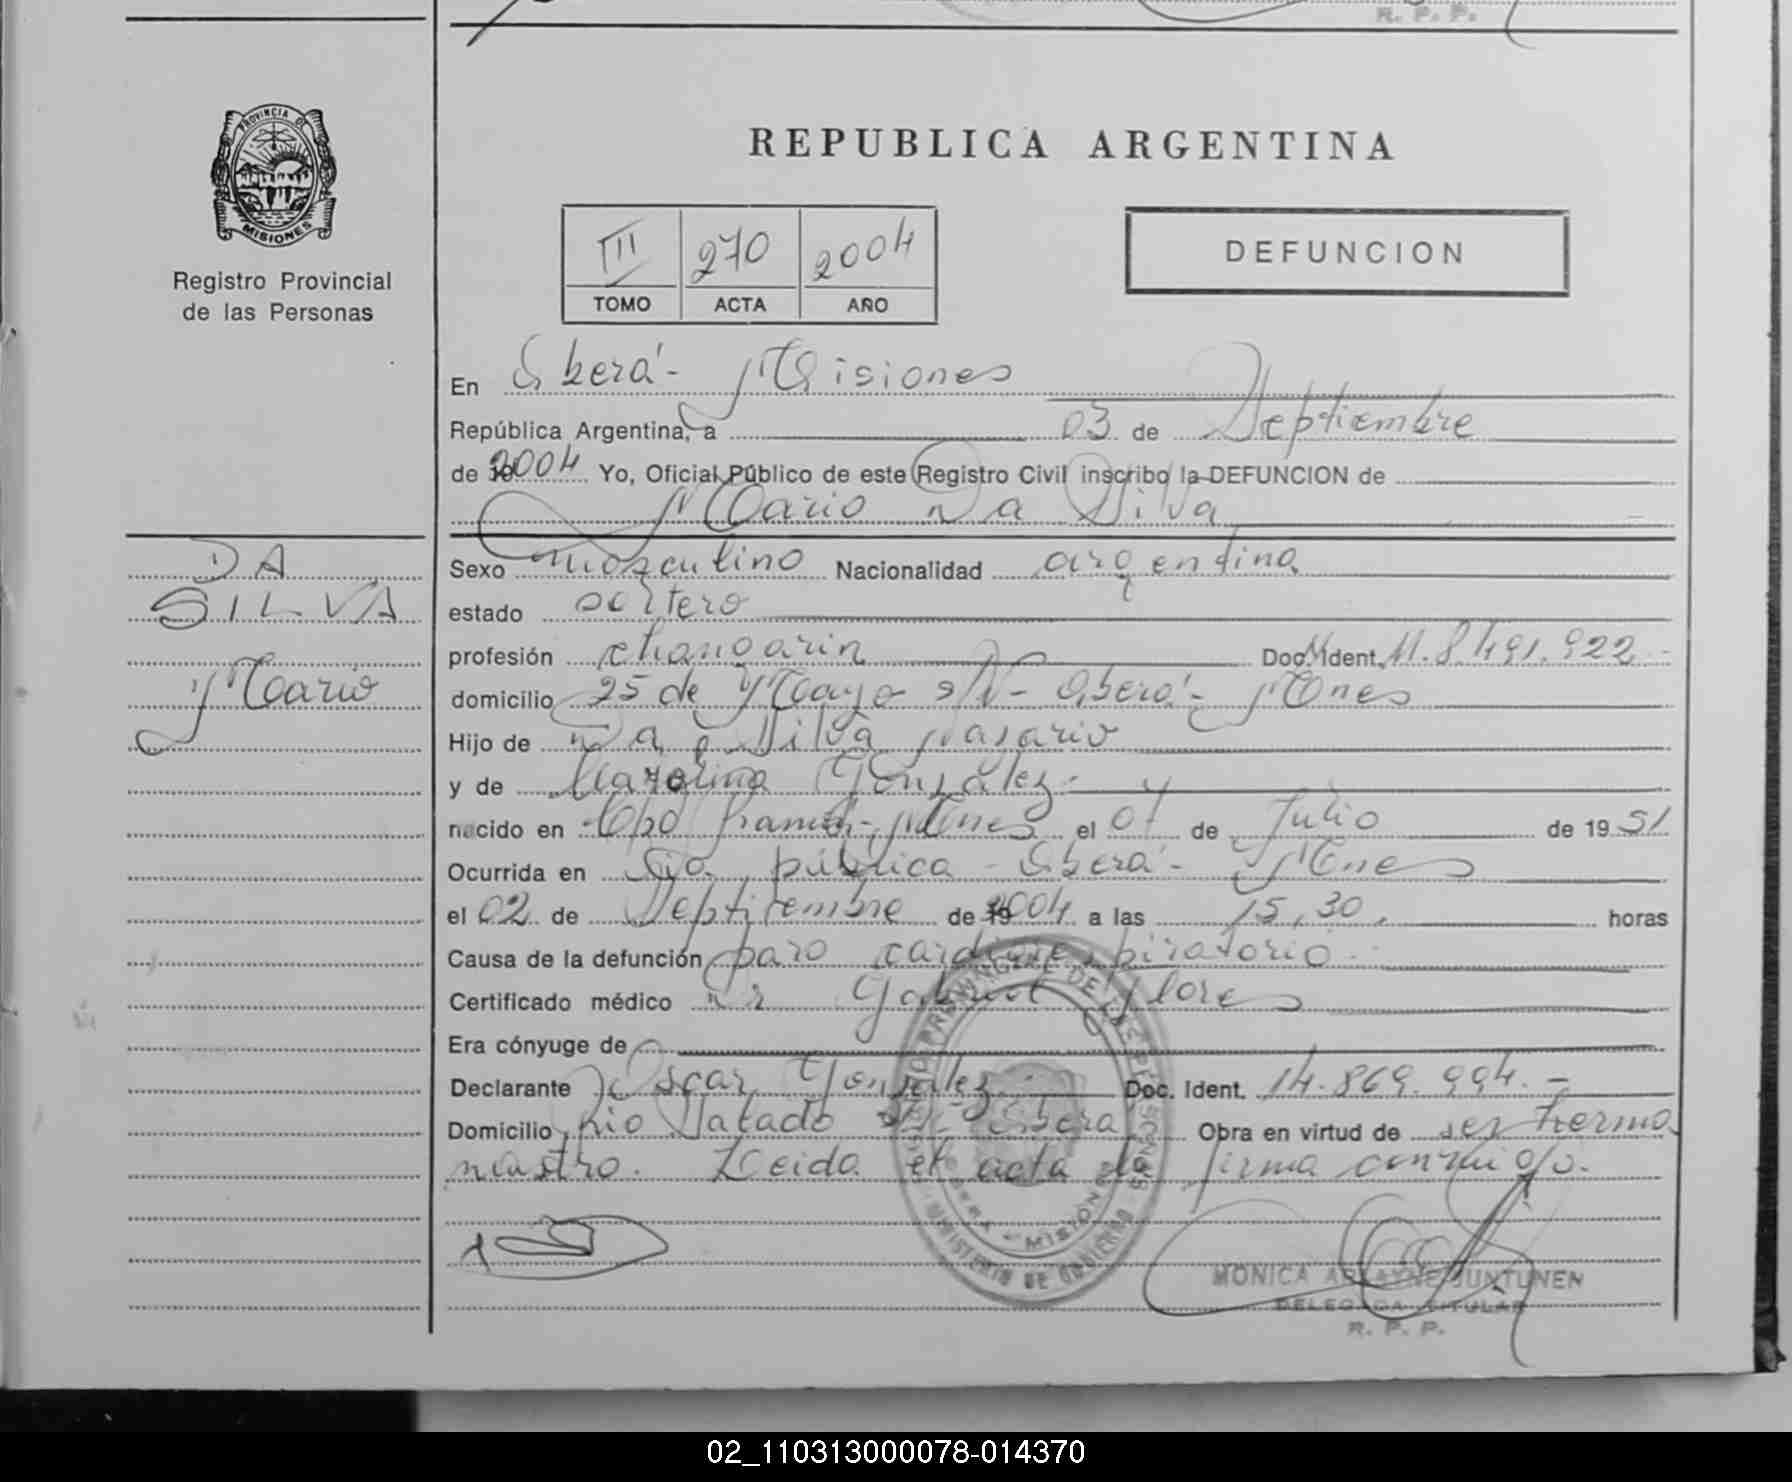 R. P. P.
PROVINCIA DE
MISIONES
Registro Provincial
de las Personas
REPUBLICA ARGENTINA
III 270 2004
TOMO ACTA AÑO
DEFUNCION
En Oberá - Misiones
República Argentina, a 03 de Septiembre
de 2004 Yo, Oficial Público de este Registro Civil inscribo la DEFUNCION de
Mario Da Silva
DA
SILVA
Mario
Sexo masculino Nacionalidad argentina
estado soltero
profesión changarin Doc. Ident. M. 8.491.922 -
domicilio 25 de Mayo s/N - Oberá - Mnes
Hijo de Da Silva Nasario
y de González
nacido en Cpo Mnes el 07 de Julio de 1951
Ocurrida en Vía pública - Oberá - Mnes
el 02 de Septiembre de 2004 a las 15,30. horas
Causa de la defunción paro cardiorespiratorio
Certificado médico Dr Gabriel Flores
Era cónyuge de
Declarante Oscar González Doc. Ident. 14.869.994. -
Domicilio Oberá Obra en virtud de ser herma
nastro. Leida el acta la firma conmigo.
MONICA JUNTUNEN
DELEGADA TITULAR
R. P. P.
MINISTERIO DE GOBIERNO
MISIONES
02_110313000078-014370